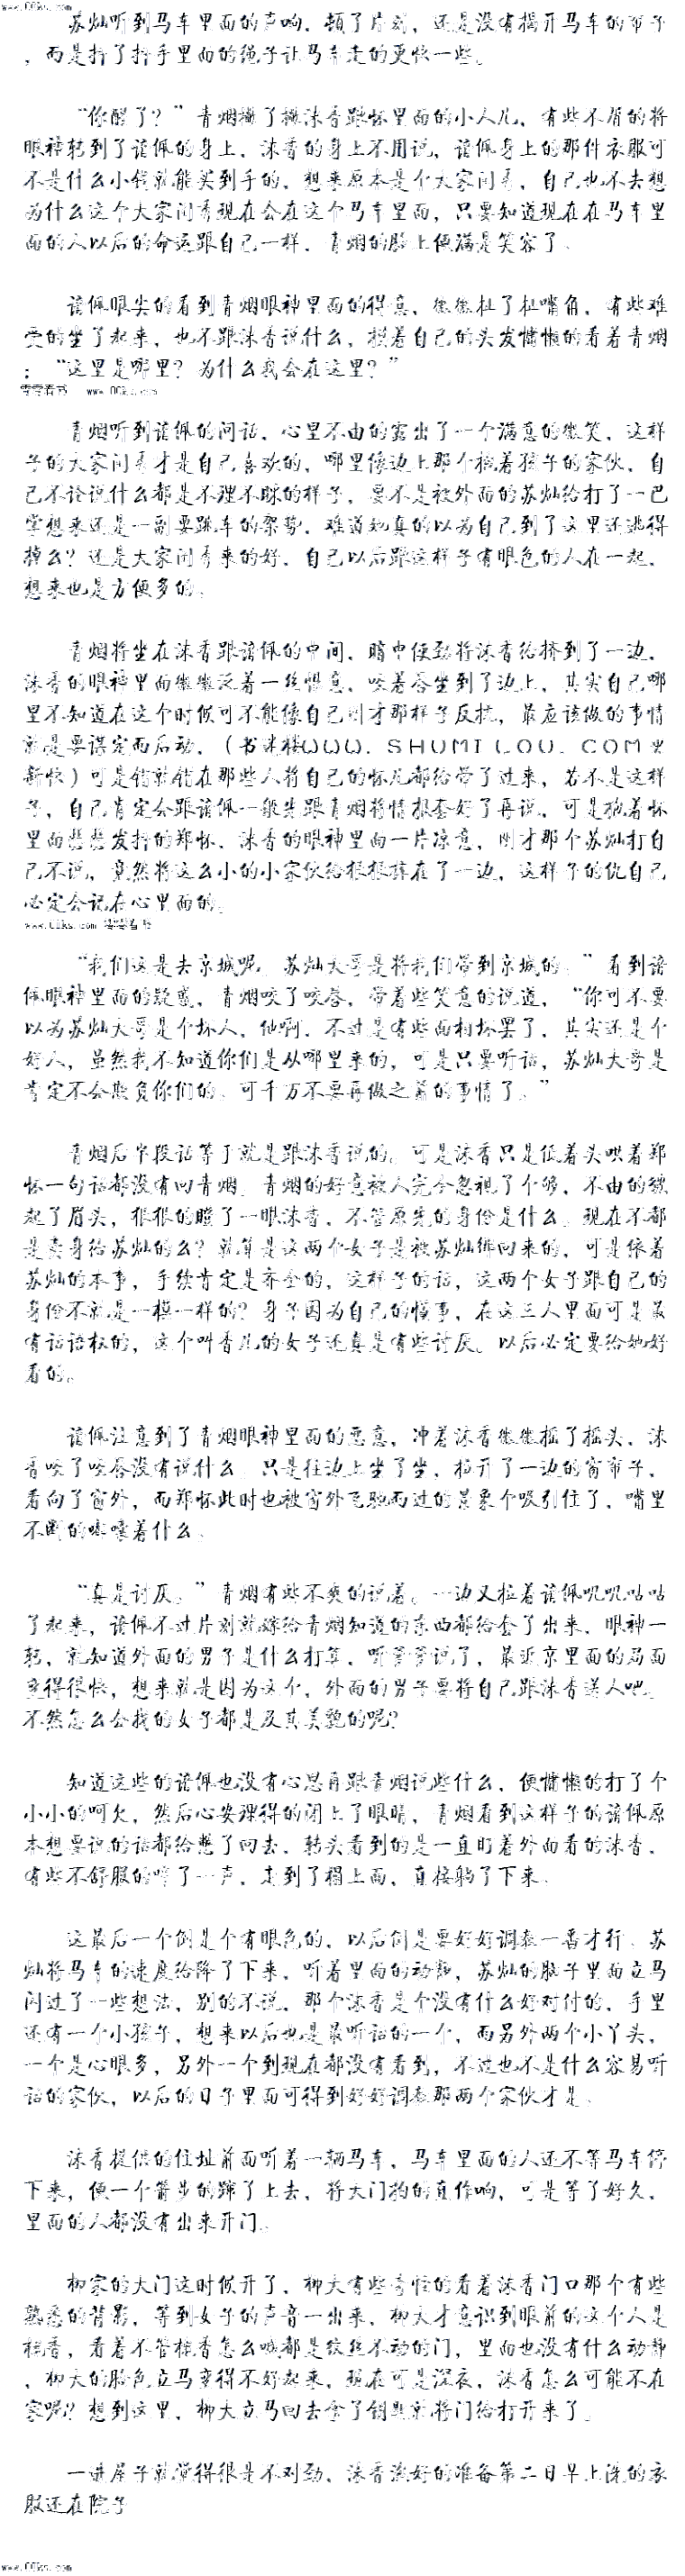 www.00ks.com
苏灿听到马车里面的声响，顿了片刻，还是没有揭开马车的帘子
，而是抖了抖手里面的绳子让马车走的更快一些。
“你醒了？”青烟撇了撇沫香跟怀里面的小人儿，有些不屑的将
眼神转到了谙佩的身上，沫香的身上不用说，谙佩身上的那件衣服可
不是什么小钱就能买到手的，想来原本是个大家闺秀，自己也不去想
为什么这个大家闺秀现在会在这个马车里面，只要知道现在在马车里
面的人以后的命运跟自己一样，青烟的脸上便满是笑容了。
谙佩眼尖的看到青烟眼神里面的得意，微微扯了扯嘴角，有些难
受的坐了起来，也不跟沫香说什么，拢着自己的头发慵懒的看着青烟
：“这里是哪里？为什么我会在这里？”
零零看书 www.00ks.com
青烟听到谙佩的问话，心里不由的露出了一个满意的微笑，这样
子的大家闺秀才是自己喜欢的，哪里像边上那个抱着孩子的家伙，自
己不论说什么都是不理不睬的样子，要不是被外面的苏灿给打了一巴
掌想来还是一副要跳车的架势，难道她真的以为自己到了这里还逃得
掉么？还是大家闺秀来的好，自己以后跟这样子有眼色的人在一起，
想来也是方便多的。
青烟将坐在沫香跟谙佩的中间，暗中使劲将沫香给挤到了一边，
沫香的眼神里面微微泛着一丝恨意，咬着唇坐到了边上，其实自己哪
里不知道在这个时候可不能像自己刚才那样子反抗，最应该做的事情
就是要谋定而后动，（书迷楼ＷＷＷ．ＳＨＵＭＩＬＯＵ．ＣＯＭ更
新快）可是错就错在那些人将自己的怀儿都给带了过来，若不是这样
子，自己肯定会跟谙佩一般先跟青烟将情报套好了再说，可是抱着怀
里面瑟瑟发抖的郑怀，沫香的眼神里面一片凉意，刚才那个苏灿打自
己不说，竟然将这么小的小家伙给狠狠摔在了一边，这样子的仇自己
必定会记在心里面的。
“我们这是去京城呢，苏灿大哥是将我们带到京城的。”看到谙
佩眼神里面的疑惑，青烟咬了咬唇，带着些笑意的说道，“你可不要
以为苏灿大哥是个坏人，他啊，不过是有些面相坏罢了，其实还是个
好人，虽然我不知道你们是从哪里来的，可是只要听话，苏灿大哥是
肯定不会欺负你们的，可千万不要再做之前的事情了。”
青烟后半段话等于就是跟沫香说的，可是沫香只是低着头哄着郑
怀一句话都没有回青烟，青烟的好意被人完全忽视了个够，不由的皱
起了眉头，狠狠的瞪了一眼沫香，不管原先的身份是什么，现在不都
是卖身给苏灿的么？就算是这两个女子是被苏灿绑回来的，可是依着
苏灿的本事，手续肯定是齐全的，这样子的话，这两个女子跟自己的
身份不就是一模一样的？身子因为自己的懂事，在这三人里面可是最
有话语权的，这个叫香儿的女子还真是有些讨厌，以后必定要给她好
看的。
谙佩注意到了青烟眼神里面的恶意，冲着沫香微微摇了摇头，沫
香咬了咬唇没有说什么，只是往边上坐了坐，拉开了一边的窗帘子，
看向了窗外，而郑怀此时也被窗外飞驰而过的景象个吸引住了，嘴里
不断的嘟囔着什么。
“真是讨厌。”青烟有些不爽的说着，一边又拉着谙佩叽叽咕咕
了起来，谙佩不过片刻就将青烟知道的东西都给套了出来，眼神一
转，就知道外面的男子是什么打算，听爹爹说了，最近京里面的局面
变得很快，想来就是因为这个，外面的男子要将自己跟沫香送人吧，
不然怎么会找的女子都是及其美貌的呢？
知道这些的谙佩也没有心思再跟青烟说些什么，便慵懒的打了个
小小的呵欠，然后心安理得的闭上了眼睛，青烟看到这样子的谙佩原
本想要说的话都给憋了回去，转头看到的是一直盯着外面看的沫香，
有些不舒服的哼了一声，走到了榻上面，直接躺了下来。
这最后一个倒是个有眼色的，以后倒是要好好调教一番才行，苏
灿将马车的速度给降了下来，听着里面的动静，苏灿的脑子里面立马
闪过了一些想法，别的不说，那个沫香是个没有什么好对付的，手里
还有一个小孩子，想来以后也是最听话的一个，而另外两个小丫头，
一个是心眼多，另外一个到现在都没有看到，不过也不是什么容易听
话的家伙，以后的日子里面可得到好好调教那两个家伙才是。
沫香提供的住址前面听着一辆马车，马车里面的人还不等马车停
下来，便一个箭步的蹿了上去，将大门拍的直作响，可是等了好久，
里面的人都没有出来开门。
柳家的大门这时候开了，柳大有些奇怪的看着沫香门口那个有些
熟悉的背影，等到女子的声音一出来，柳大才意识到眼前的这个人是
棉香，看着不管棉香怎么喊都是纹丝不动的门，里面也没有什么动静
，柳大的脸色立马变得不好起来，现在可是深夜，沫香怎么可能不在
家呢？想到这里，柳大立马回去拿了钥匙就将门给打开来了。
一进屋子就觉得很是不对劲，沫香泡好的准备第二日早上洗的衣
服还在院子
www.00ks.com